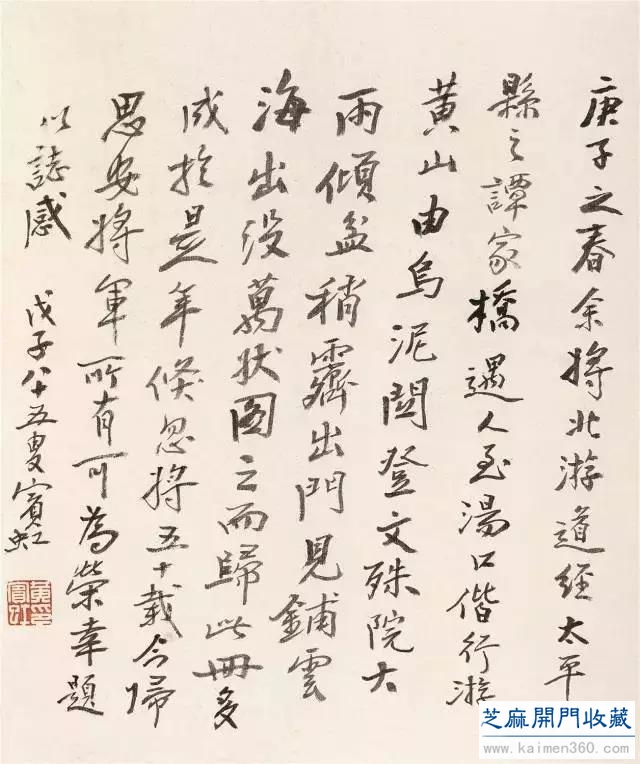 庚子之春余将北游道經太平
縣之譚家橋遇人至湯口偕行游
黄山由烏泥関登文殊院大
雨傾盆稍霽出門見鋪雲
海出没萬狀圖之而歸此冊多
成於是年倏忽将五十載今歸
思安将軍所有可為榮幸題
以誌感
戊子八十五叟賓虹
黄賓虹
芝麻開門收藏
www.kaimen360.com